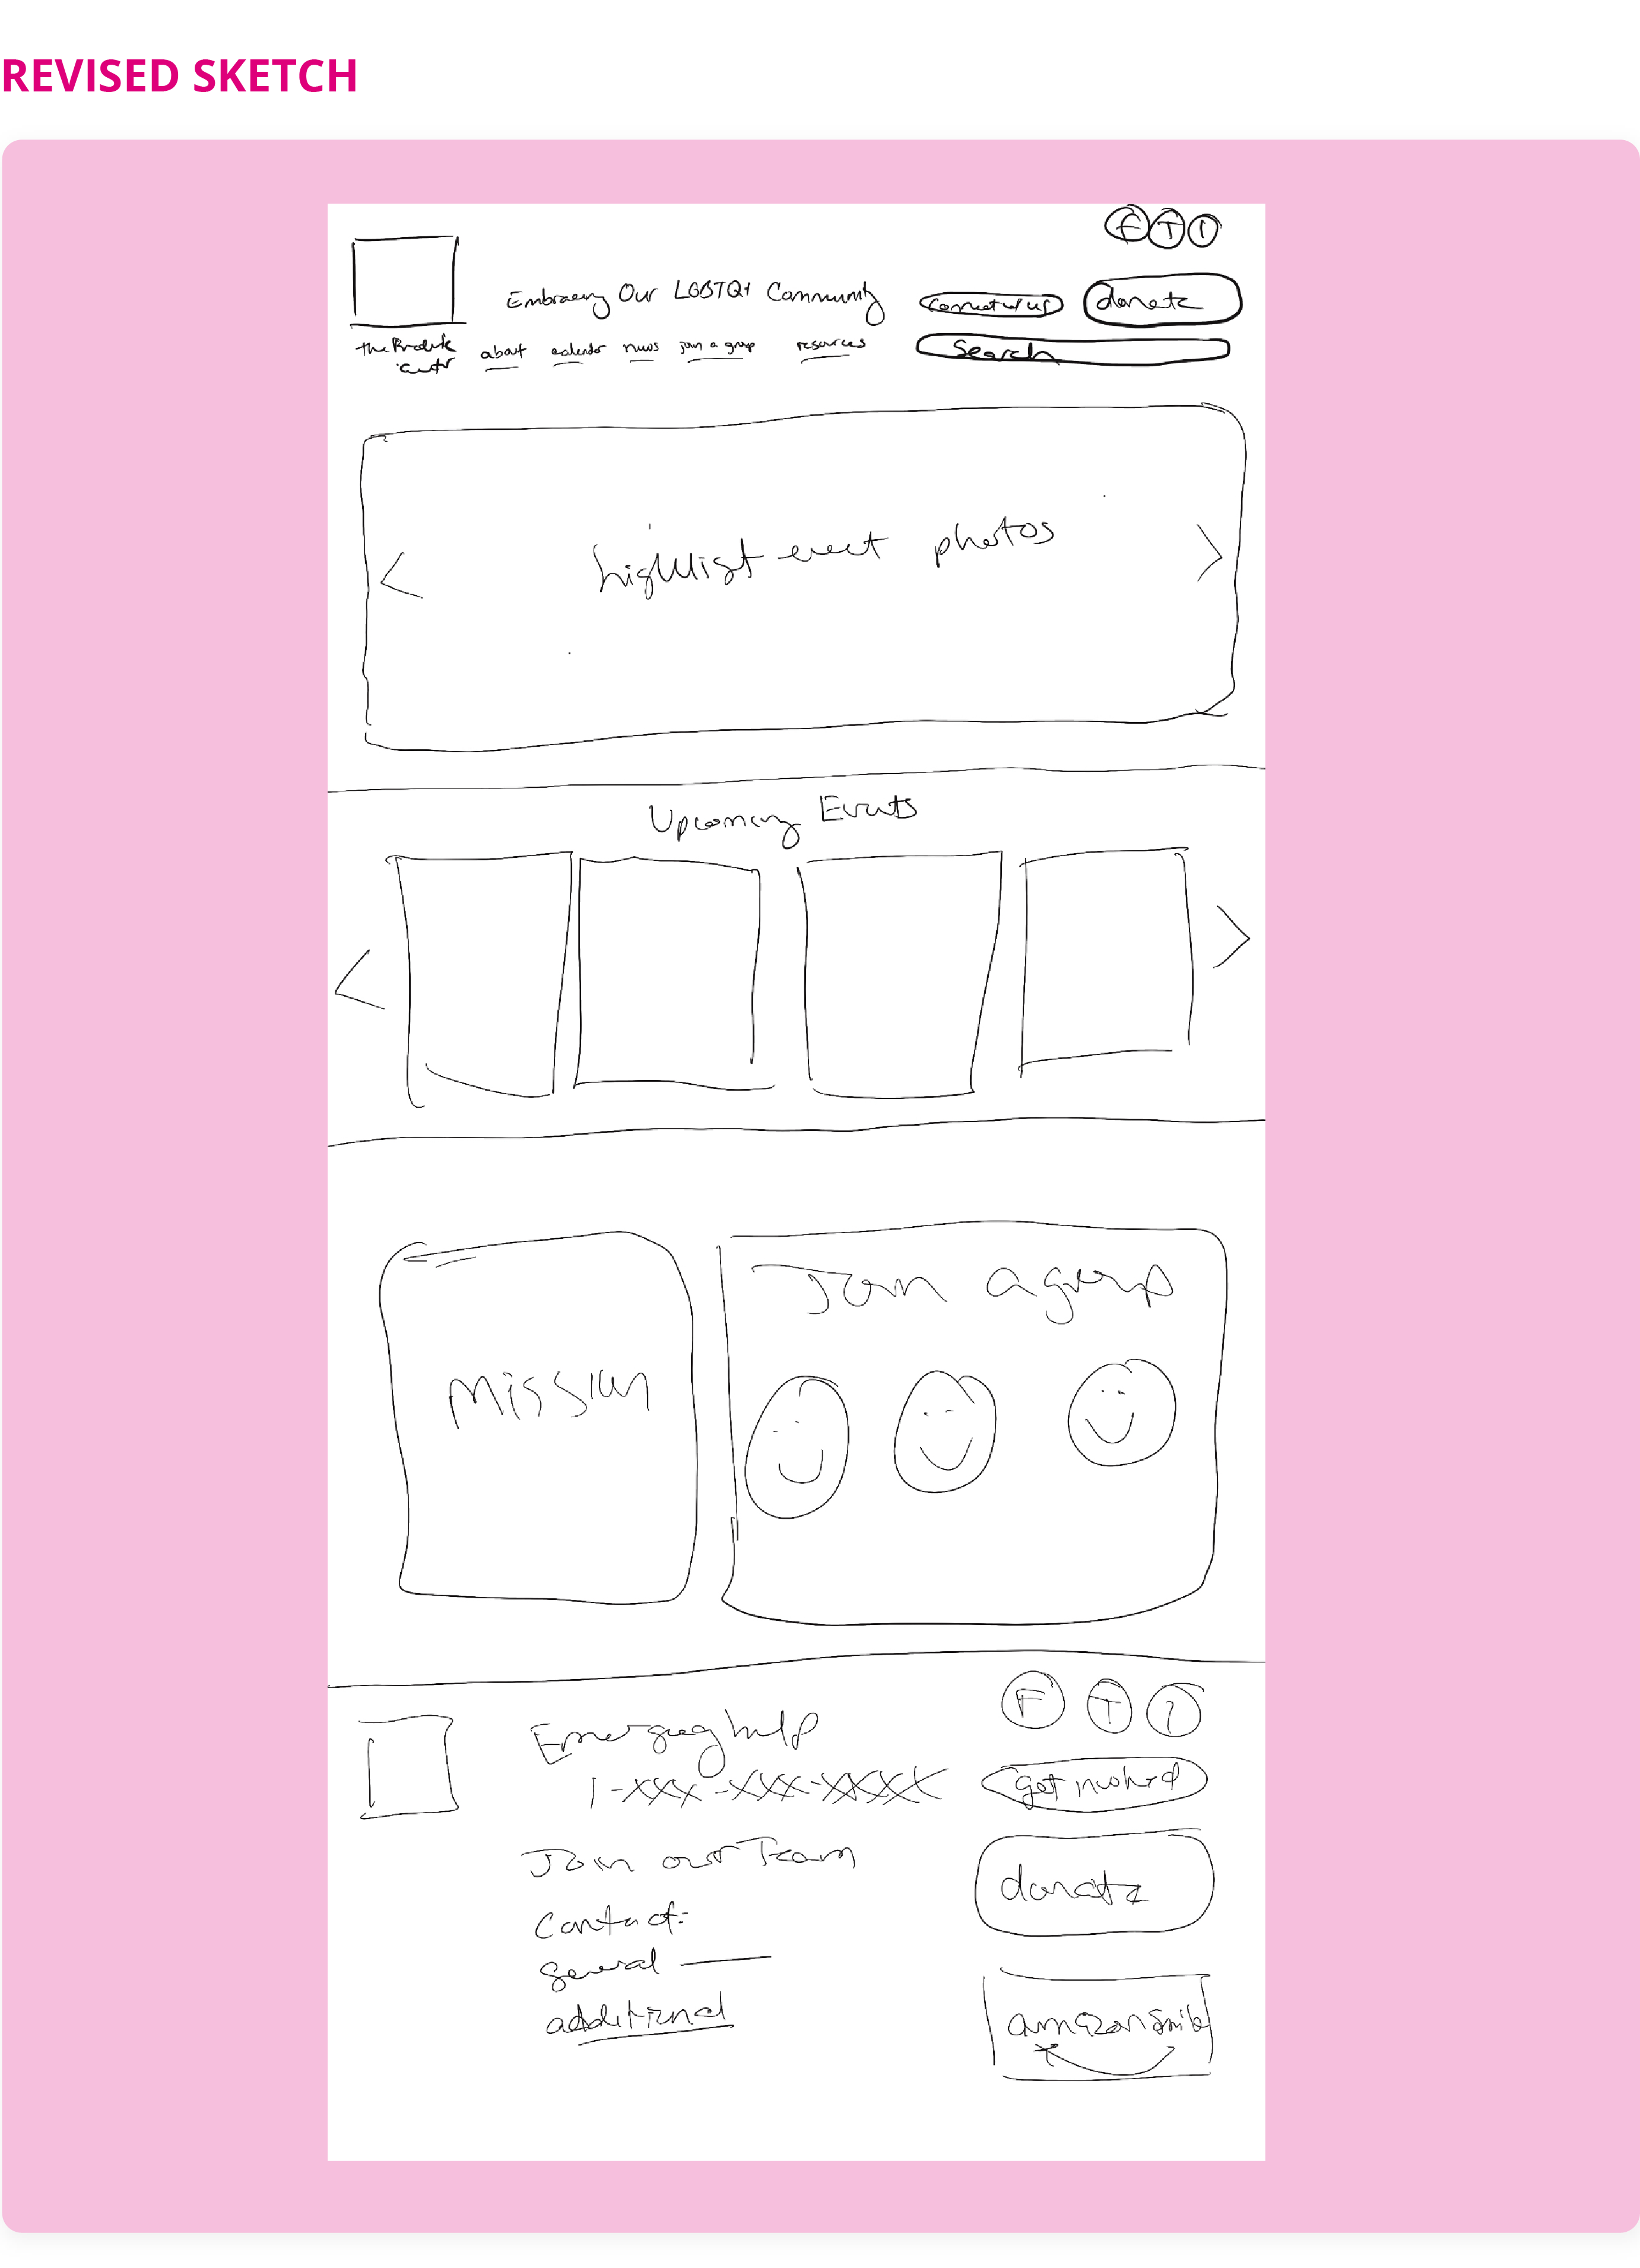 REVISED SKETCH
F T I
Embracing Our LGBTQ+ Community
connect w/ us
donate
the
about
calendar
news
join a group
resources
Search
< highlight event photos >
Upcoming Events
< >
Mission
Join a group
F T I
Emergency help
1-xxx-xxx-xxxx
get involved
Join our Team
donate
Contact:
general
additional
amazon smile